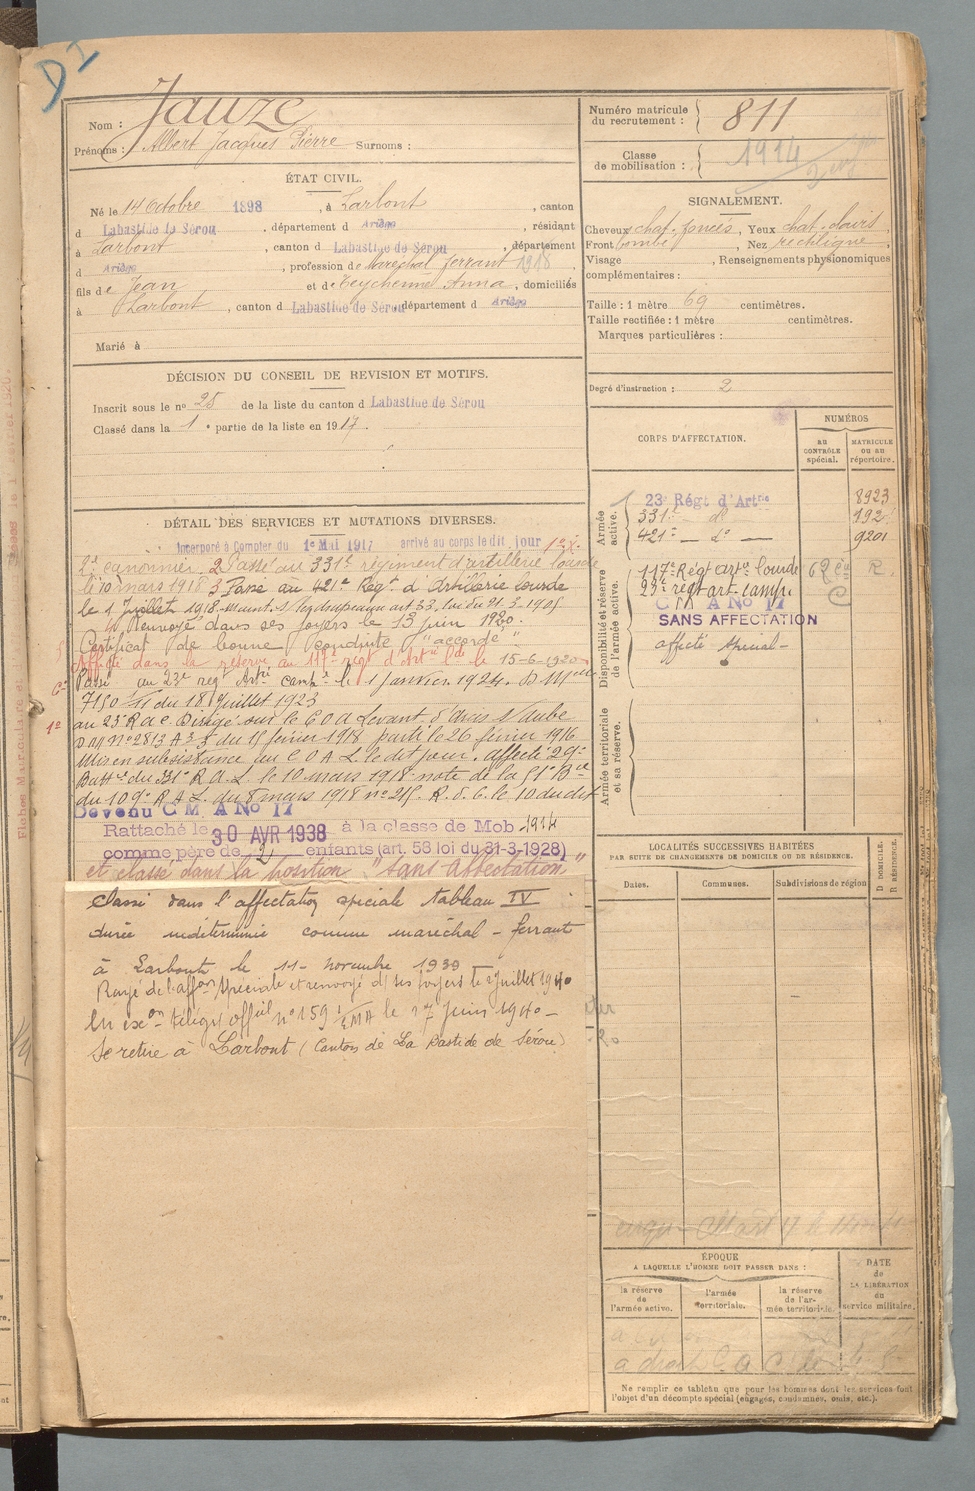 D I
Nom : Jauze
Prénoms : Albert Jacques Pierre Surnoms :
ÉTAT CIVIL.
Né le 14 Octobre 1898, à Larbont, canton
d Labastide de Sérou, département d Ariège, résidant
à Larbont, canton d Labastide de Sérou, département
d Ariège, profession de Maréchal ferrant 1918,
fils de Jean et de Teychenné Anna, domiciliés
à Larbont, canton d Labastide de Sérou, département d Ariège
Marié à
DÉCISION DU CONSEIL DE REVISION ET MOTIFS.
Inscrit sous le nº 28 de la liste du canton d Labastide de Sérou
Classé dans la 1e partie de la liste en 1917.
DÉTAIL DES SERVICES ET MUTATIONS DIVERSES.
Incorporé à Compter du 1er Mai 1917 arrivé au corps le dit jour
2e canonnier. 2 Passé au 331e régiment d'artillerie lourde
le 10 mars 1918 3 Passé au 421e Régt d'Artillerie Lourde
le 1 Juillet 1918. art 33, loi du 21-3-1905
Renvoyé dans ses foyers le 13 juin 1920.
Certificat de bonne conduite "accordé"
Affecté dans la réserve au 117e régt d'Artie Lde le 15-6-1920
Passé au 23e régt Artie campe le 1 Janvier 1924. D Mlle
7150 1/11 du 18 Juillet 1923
au 23e R a c. Dirigé sur le C O A Levant. d'Arcis s/ Aube
nº 2813 A 3 du 15 février 1918 parti le 26 février 1916
Mis en subsistance au C O A L. le dit jour. affecté 29e
Battie du 331e R. A. L. le 10 mars 1918 note de la 51e Bie
du 109e R A L. du 8 mars 1918 nº 215. R. d. C. le 10 du dit
Devenu C M A No 17
Rattaché le 30 AVR 1938 à la classe de Mob 1914
comme père de 2 enfants (art. 58 loi du 31-3-1928)
et classé dans la position "sans affectation"
Classé dans l'affectation spéciale tableau IV
durée indéterminée comme maréchal-ferrant
à Larbont le 11 - novembre 1939
Rayé de l'affon spéciale et renvoyé ds ses foyers le 2 juillet 1940
En exon télégr officiel nº 159 1/EMA le 27 Juin 1940 -
Se retire à Larbont (Canton de La Bastide de Sérou)
Numéro matricule
du recrutement : 811
Classe
de mobilisation : 1914
SIGNALEMENT.
Cheveux chat. foncés, Yeux chat. clairs
Front bombé, Nez rectiligne,
Visage , Renseignements physionomiques
complémentaires :
Taille : 1 mètre 69 centimètres.
Taille rectifiée : 1 mètre centimètres.
Marques particulières :
Degré d'instruction : 2
CORPS D'AFFECTATION.
NUMÉROS
AU CONTRÔLE spécial.
MATRICULE OU AU répertoire.
Armée active.
23e Régt d'Artie 8923
331e - do 192
421e - do - 9201
Disponibilité et réserve de l'armée active.
117e Régt artie Lourde R.
23e régt art. camp.
C M A No 17
SANS AFFECTATION
affecté spécial -
Armée territoriale et sa réserve.
LOCALITÉS SUCCESSIVES HABITÉES
PAR SUITE DE CHANGEMENTS DE DOMICILE OU DE RÉSIDENCE.
Dates.
Communes.
Subdivisions de région
D DOMICILE.
R RÉSIDENCE.
ÉPOQUE
A LAQUELLE L'HOMME DOIT PASSER DANS :
la réserve de l'armée active.
l'armée territoriale.
la réserve de l'armée territoriale.
DATE de LA LIBÉRATION du service militaire.
Ne remplir ce tableau que pour les hommes dont les services font
l'objet d'un décompte spécial (engagés, condamnés, omis, etc.).